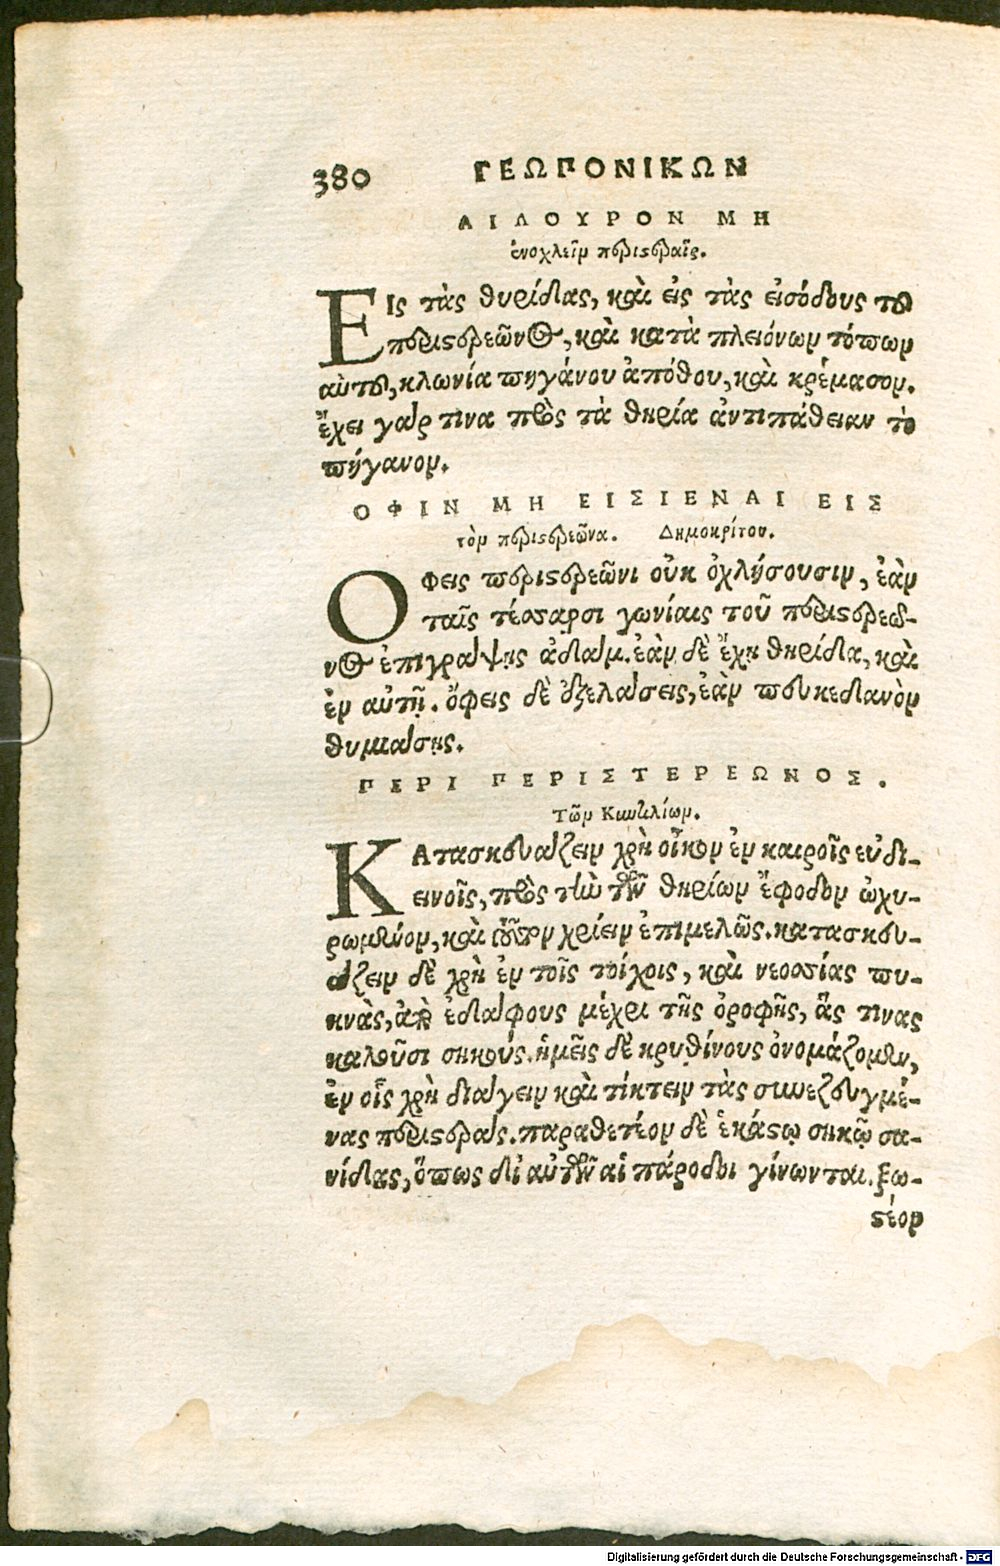 380 ΓΕΩΠΟΝΙΚΩΝ
ΑΙΛΟΥΡΟΝ ΜΗ
ἐνοχλεῖν περιστεραῖς.
ΕΙς τὰς θυρίδας, καὶ εἰς τὰς εἰσόδους τοῦ
περιστερεῶνος, καὶ κατὰ πλειόνων τόπων
αὐτοῦ, κλωνία πηγάνου ἀπόθου, καὶ κρέμασον.
ἔχει γάρ τινα πρὸς τὰ θηρία ἀντιπάθειαν τὸ
πήγανον.
ΟΦΙΝ ΜΗ ΕΙΣΙΕΝΑΙ ΕΙΣ
τὸν περιστερεῶνα. Δημοκρίτου.
ΟΦεις περιστερεῶνι οὐκ ὀχλήσουσιν, ἐὰν
ταῖς τέσσαρσι γωνίαις τοῦ περιστερεῶ-
νος ἐπιγράψῃς ἀδάμ. ἐὰν δὲ ἔχῃ θηρίδια, καὶ
ἐν αὐτῇ. ὄφεις δὲ ἐξελάσεις, ἐὰν πευκεδανὸν
θυμιάσῃς.
ΠΕΡΙ ΠΕΡΙΣΤΕΡΕΩΝΟΣ.
Τῶν Κυντιλίων.
ΚΑτασκευάζειν χρὴ οἶκον ἐν καιροῖς εὐδι-
εινοῖς, πρὸς τὴν τῶν θηρίων ἔφοδον ὠχυ-
ρωμένον, καὶ τοῦτον χρίειν ἐπιμελῶς. κατασκευ-
άζειν δὲ χρὴ ἐν τοῖς τοίχοις, καὶ νεοσσίας πυ-
κνὰς, ἀπὸ ἐδάφους μέχρι τῆς ὀροφῆς, ἅς τινας
καλοῦσι σηκούς. ἡμεῖς δὲ κρυθίνους ὀνομάζομεν,
ἐν οἷς χρὴ διάγειν καὶ τίκτειν τὰς συνεζευγμέ-
νας περιστεράς. παραθετέον δὲ ἑκάστῳ σηκῷ σα-
νίδας, ὅπως δι' αὐτῶν αἱ πάροδοι γίνωνται. ξω-
στέον
Digitalisierung gefördert durch die Deutsche Forschungsgemeinschaft - DFG